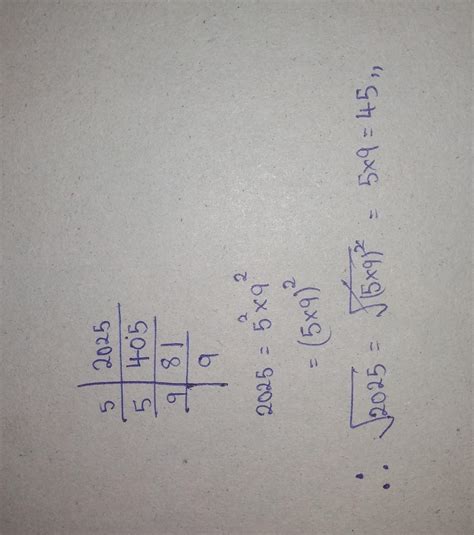 5 | 2025
5 | 405
9 | 81
9
2025 = 5² × 9²
= (5×9)²
∴ √2025 = √(5×9)² = 5×9 = 45,,